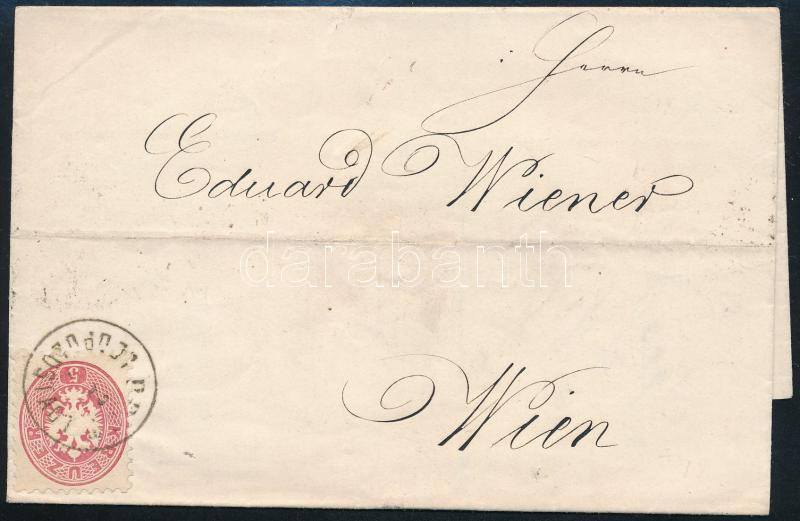 Herrn
Eduard Wiener
darabanth
Wien
5
KREUZER